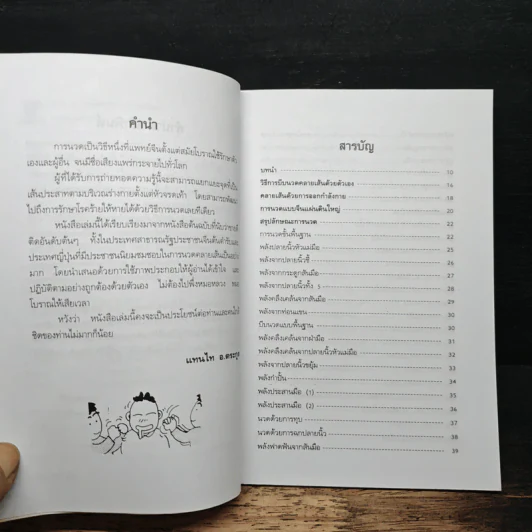 คำนำ
การนวดเป็นวิธีหนึ่งที่แพทย์จีนตั้งแต่สมัยโบราณใช้รักษาตัว
เองและผู้อื่น จนมีชื่อเสียงแพร่กระจายไปทั่วโลก
ผู้ที่ได้รับการถ่ายทอดความรู้นี้จะสามารถแยกแยะจุดที่เป็น
เส้นประสาทตามบริเวณร่างกายตั้งแต่หัวจรดเท้า โดยสามารถ
ไปถึงการรักษาโรคร้ายให้หายได้ด้วยวิธีการนวดเลยทีเดียว
หนังสือเล่มนี้ได้เรียบเรียงมาจากหนังสือต้นฉบับที่
ติดอันดับต้นๆ ทั้งในประเทศสาธารณรัฐประชาชนจีนต้นตำรับและ
ประเทศญี่ปุ่นที่มีประชาชนนิยมชมชอบในการนวดคลายเส้นเป็นอย่าง
มาก โดยนำเสนอด้วยการใช้ภาพประกอบให้ผู้อ่านได้เข้าใจ และ
ปฏิบัติตามอย่างถูกต้องด้วยตัวเอง ไม่ต้องไปพึ่งหมอหลวง
โบราณให้เสียเวลา
หวังว่า หนังสือเล่มนี้คงจะเป็นประโยชน์ต่อท่านและคนใกล้
ชิดของท่านไม่มากก็น้อย
แทนไท อ.ตระกูล
สารบัญ
บทนำ 10
วิธีการบีบนวดคลายเส้นด้วยตัวเอง 14
คลายเส้นด้วยการออกกำลังกาย 18
การนวดแบบจีนแผ่นดินใหญ่ 20
สรุปลักษณะการนวด 22
การนวดขั้นพื้นฐาน 22
พลังปลายนิ้วหัวแม่มือ 22
พลังจากปลายนิ้วชี้
พลังจากกระดูกสันมือ
พลังจากปลายนิ้วทั้ง 5
พลังคลึงเคล้นจากสันมือ
พลังจากท่อนแขน
บีบนวดแบบพื้นฐาน 30
พลังคลึงเคล้นจากฝ่ามือ 31
พลังคลึงเคล้นจากปลายนิ้วหัวแม่มือ 32
พลังจากปลายนิ้วขยุ้ม 33
พลังกำปั้น 34
พลังประสานมือ (1) 35
พลังประสานมือ (2) 36
นวดด้วยการทุบ 37
นวดด้วยการฉกปลายนิ้ว 38
พลังฟาดฟันจากสันมือ 39